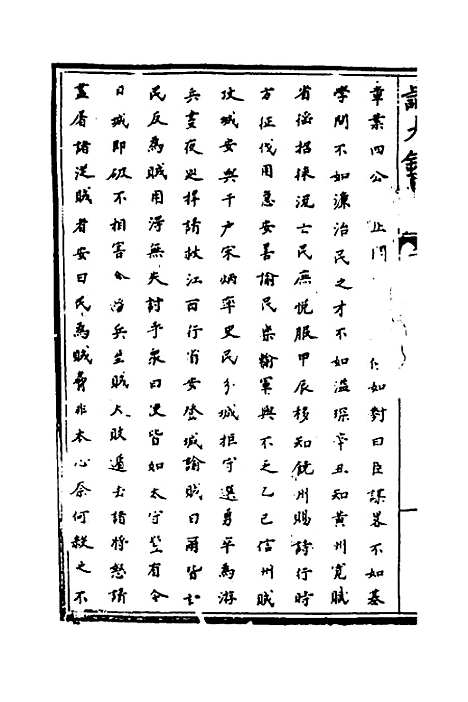 章業四公　上問　何如對曰臣謀畧不如基
學問不如濂治民之才不如溢琛辛丑知黃州寬賦
省徭招徠流亡民庶悅服甲辰移知饒州賜詩行時
方征伐用急安善諭民樂輸軍興不乏乙巳信州賊
攻城安與千戶宋炳率吏民分城拒守選勇平為游
兵晝夜巡捍請救江西行省安登城諭賊曰爾皆吾
民反為賊用得無失計乎衆曰使皆如太守豈有今
日城即破不相害會援兵至賊大敗遁去諸將怒請
盡屠諸從賊者安曰民為賊脅非本心奈何殺之不